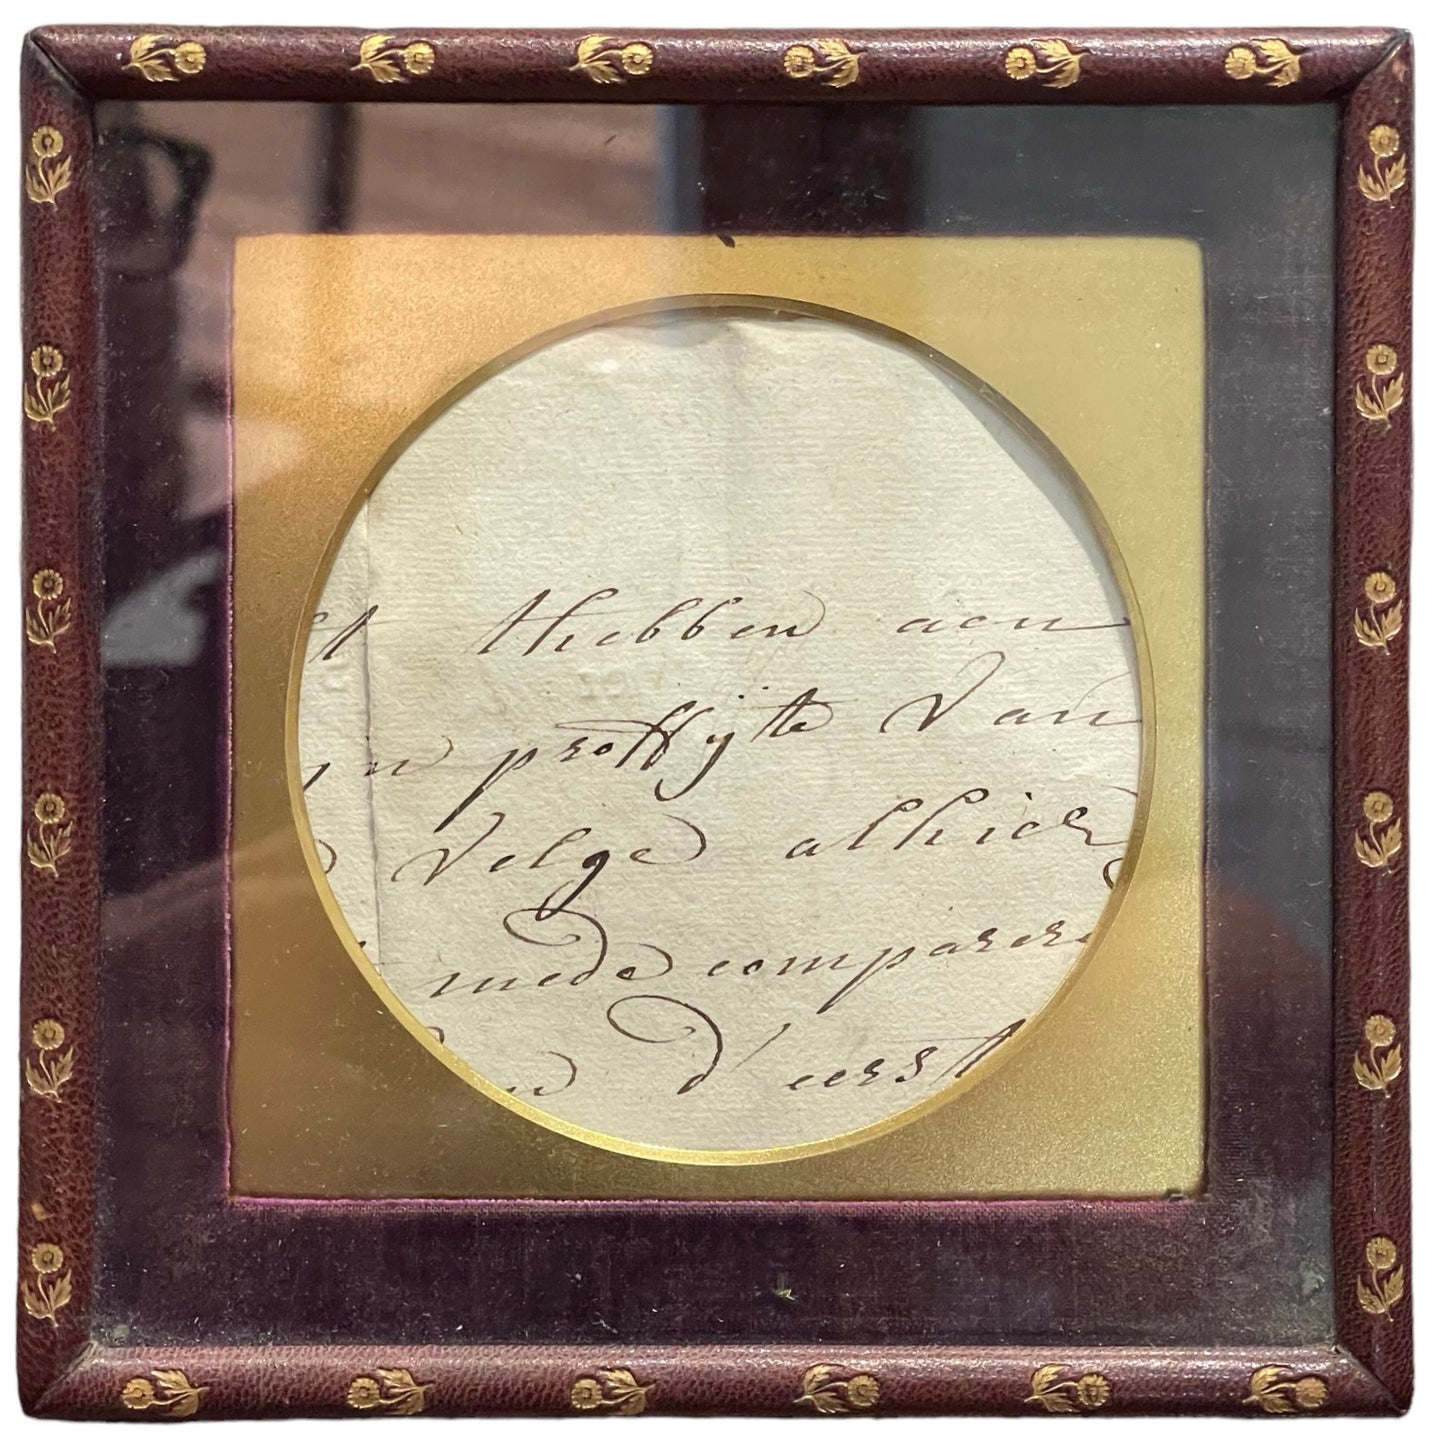 t thebben aen
yn proffijte Van
Velge alhier
mede comparere
en d'eerst